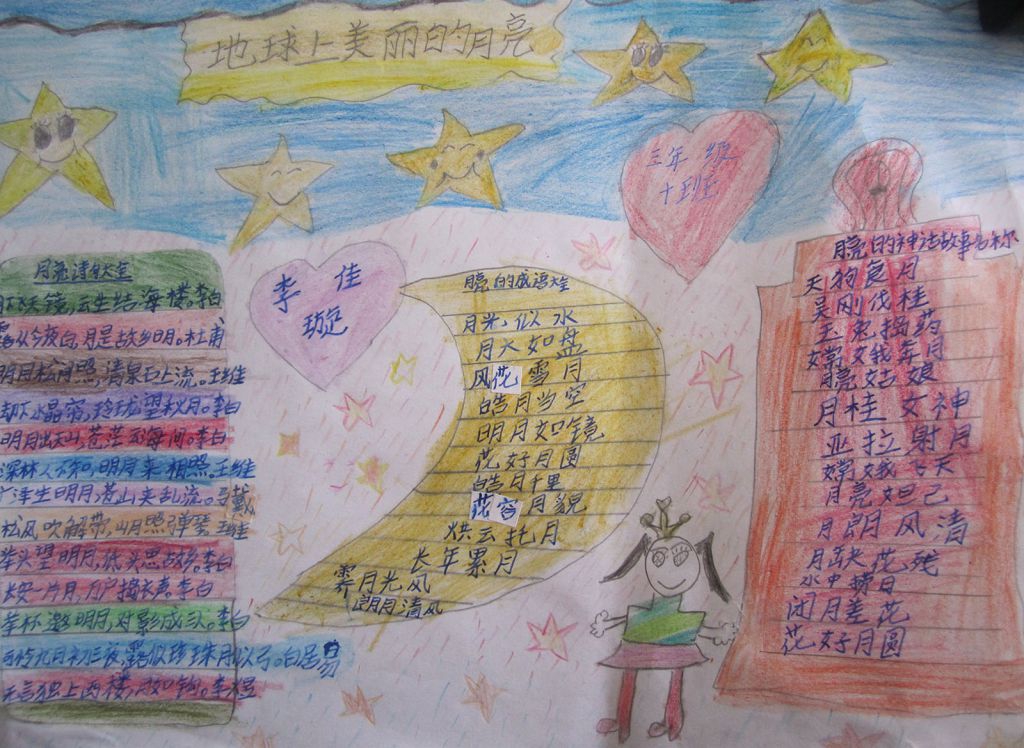 地球上美丽的月亮
三年级
十班
李佳
璇
月亮诗句大全
月下飞天镜,云生结海楼。李白
露从今夜白,月是故乡明。杜甫
明月松间照,清泉石上流。王维
却下水晶帘,玲珑望秋月。李白
明月出天山,苍茫云海间。李白
深林人不知,明月来相照。王维
广泽生明月,苍山夹乱流。马戴
松风吹解带,山月照弹琴。王维
举头望明月,低头思故乡。李白
长安一片月,万户捣衣声。李白
举杯邀明月,对影成三人。李白
可怜九月初三夜,露似珍珠月似弓。白居易
无言独上西楼,月如钩。李煜
月亮的成语大全
月光似水
月大如盘
风花雪月
皓月当空
明月如镜
花好月圆
皓月千里
花容月貌
烘云托月
长年累月
霁月光风
朗月清风
月亮的神话故事名称
天狗食月
吴刚伐桂
玉兔捣药
嫦娥奔月
月亮姑娘
月桂女神
亚拉射月
嫦娥飞天
月亮妲己
月朗风清
月缺花残
水中捞月
闭月羞花
花好月圆